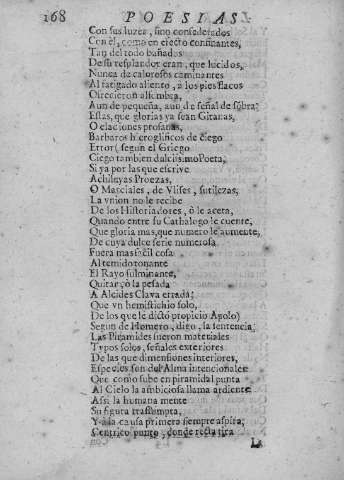 168 POESIAS
Con sus luzes, sino considerados
Con él, como en efecto confinantes,
Tan del todo bañados
De su resplandor eran, que lucidos,
Nunca de calorosos caminantes
Al fatigado aliento, a los pies flacos
Ofrecieron alfombra,
Aun de pequeña, aun de señal de sõbra:
Estas, que glorias ya sean Gitanas,
O elaciones profanas,
Barbaros hieroglificos de ciego
Error (segun el Griego
Ciego tambien dulcissimo Poeta,
Si ya por las que escrive
Achileyas Proezas,
O Marciales, de Vlises, sutilezas,
La vnion no le recibe
De los Historiadores, ò le aceta,
Quando entre su Cathalogo le cuente,
Que gloria mas, que numero le aumente,
De cuya dulce serie numerosa
Fuera mas facil cosa
Al temido tonante
El Rayo fulminante,
Quitar, ò la pesada
A Alcides Clava errada:
Que vn hemistichio solo,
De los que le dictó propicio Apolo)
Segun de Homero, digo, la sentencia,
Las Piramides fueron materiales
Typos solos, señales exteriores
De las que dimensiones interiores,
Especies son del Alma intencionales
Que como sube en piramidal punta
Al Cielo la ambiciosa llama ardiente
Assi la humana mente
Su figura trasumpta,
Y à la causa primera siempre aspira;
Centrico punto, donde recta tira
La